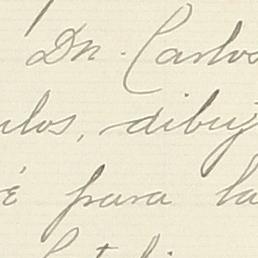 Dn. Carlos
ulos, dibuj
é para la